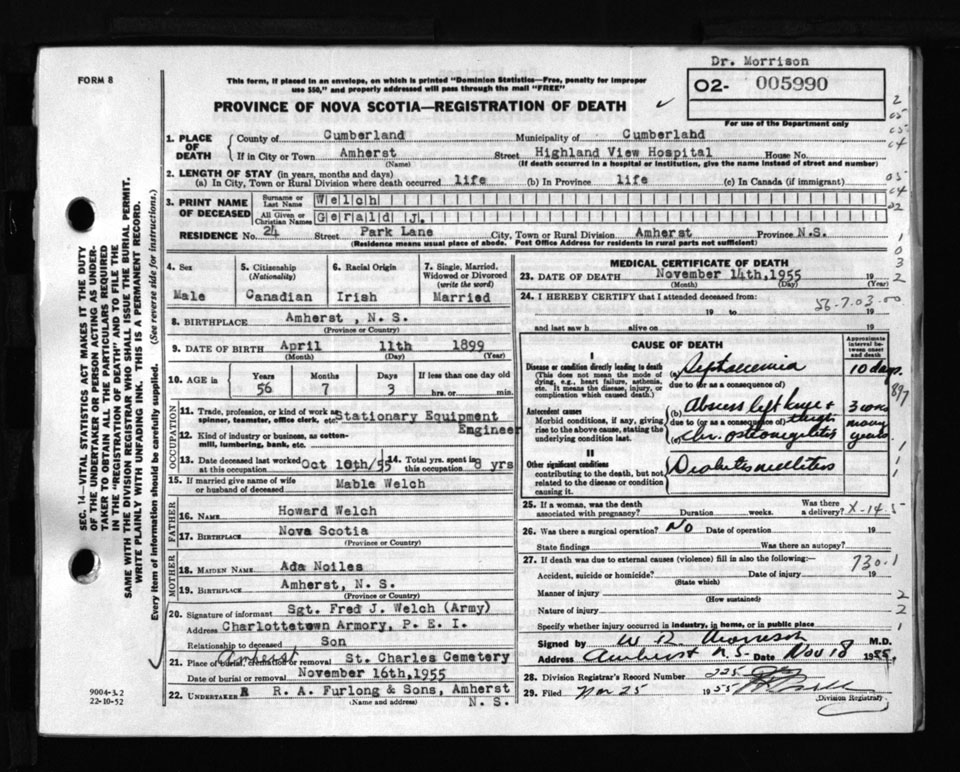 Dr. Morrison
FORM 8
This form, if placed in an envelope, on which is printed "Dominion Statistics—Free, penalty for improper
use $50," and properly addressed will pass through the mail "FREE"
02- 005990
For use of the Department only
PROVINCE OF NOVA SCOTIA—REGISTRATION OF DEATH
1. PLACE OF DEATH
County of Cumberland Municipality of Cumberland
If in City or Town Amherst Street Highland View Hospital House No.
(Name) (If death occurred in a hospital or institution, give the name instead of street and number)
2. LENGTH OF STAY (in years, months and days)
(a) In City, Town or Rural Division where death occurred life (b) In Province life (c) In Canada (if immigrant)
3. PRINT NAME OF DECEASED
Surname or Last Name Welch
All Given or Christian Names Gerald J.
RESIDENCE No. 24 Street Park Lane City, Town or Rural Division Amherst Province N.S.
(Residence means usual place of abode. Post Office Address for residents in rural parts not sufficient)
4. Sex
Male
5. Citizenship (Nationality)
Canadian
6. Racial Origin
Irish
7. Single, Married, Widowed or Divorced (write the word)
Married
8. BIRTHPLACE Amherst, N. S.
(Province or Country)
9. DATE OF BIRTH April 11th 1899
(Month) (Day) (Year)
10. AGE in Years Months Days If less than one day old
56 7 3 hrs. or min.
OCCUPATION
11. Trade, profession, or kind of work as spinner, teamster, office clerk, etc. Stationary Equipment
Engineer
12. Kind of industry or business, as cotton-mill, lumbering, bank, etc.
13. Date deceased last worked at this occupation Oct 10th/55 14. Total yrs. spent in this occupation 8 yrs
15. If married give name of wife or husband of deceased Mable Welch
FATHER
16. NAME Howard Welch
17. BIRTHPLACE Nova Scotia
(Province or Country)
MOTHER
18. MAIDEN NAME Ada Noiles
19. BIRTHPLACE Amherst, N. S.
(Province or Country)
20. Signature of informant Sgt. Fred J. Welch (Army)
Address Charlottetown Armory, P. E. I.
Relationship to deceased Son
21. Place of burial, cremation or removal Amherst St. Charles Cemetery
Date of burial or removal November 16th, 1955
22. UNDERTAKER R. A. Furlong & Sons, Amherst
(Name and address) N. S.
MEDICAL CERTIFICATE OF DEATH
23. DATE OF DEATH November 14th, 1955 19
(Month) (Day) (Year)
24. I HEREBY CERTIFY that I attended deceased from:
56-7.03.00
19 to 19
and last saw h alive on 19
CAUSE OF DEATH
Approximate interval between onset and death
I
Disease or condition directly leading to death
(This does not mean the mode of dying, e.g., heart failure, asthenia, etc. It means the disease, injury, or complication which caused death.)
(a) Septicaemia 10 days
due to (or as a consequence of)
Antecedent causes
Morbid conditions, if any, giving rise to the above cause, stating the underlying condition last.
(b) Abscess left knee + thigh 3 wks
due to (or as a consequence of)
(c) chr. osteomyelitis many years
II
Other significant conditions
contributing to the death, but not related to the disease or condition causing it.
Diabetes mellitus
25. If a woman, was the death associated with pregnancy? Duration weeks. Was there a delivery? X-14.5
26. Was there a surgical operation? No Date of operation 19
State findings Was there an autopsy?
27. If death was due to external causes (violence) fill in also the following:—
730.1
Accident, suicide or homicide? Date of injury 19
(State which)
Manner of injury
(How sustained)
Nature of injury
Specify whether injury occurred in industry, in home, or in public place
Signed by W R Morrison M.D.
Address Amherst N.S. Date Nov 18 1955
28. Division Registrar's Record Number 225
29. Filed Nov 25 1955
Division Registrar
SEC. 14—VITAL STATISTICS ACT MAKES IT THE DUTY
OF THE UNDERTAKER OR PERSON ACTING AS UNDER-
TAKER TO OBTAIN ALL THE PARTICULARS REQUIRED
IN THE "REGISTRATION OF DEATH" AND TO FILE THE
SAME WITH THE DIVISION REGISTRAR WHO SHALL ISSUE THE BURIAL PERMIT.
WRITE PLAINLY WITH UNFADING INK. THIS IS A PERMANENT RECORD.
Every item of information should be carefully supplied. (See reverse side for instructions.)
9004-3.2
22-10-52